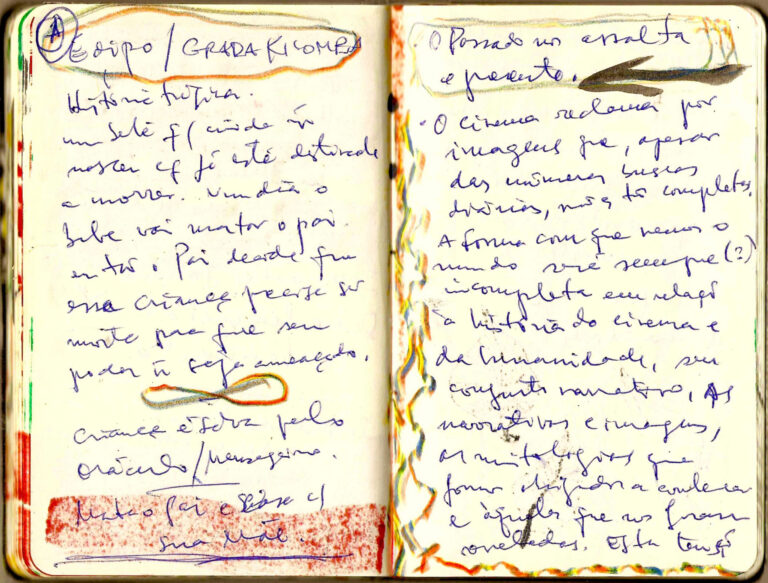 A
Édipo / GRADA KILOMBA
História trágica.
um bebé q/ ainda ñ
nasceu q já está destinado
a morrer. Um dia o
bebe vai matar o pai
então. Pai decide que
essa criança precisa ser
morta pra que seu
poder ñ seja ameaçado.
criança é salva pelo
oráculo/mensageiro.
Mata o pai e casa c/
sua mãe.
O Passado nos assalta
o presente.
. O cinema reclama por
imagens que, apesar
das inúmeras buscas
diárias, não tá completas.
A forma com que vemos o
mundo será sempre (?)
incompleta em relaçã
à história do cinema e
da humanidade, seu
conjunto narrativo, As
narrativas e imagens,
as mitologias que
fomos obrigados a conhecer
e àquelas que nos foram
reveladas. Esta